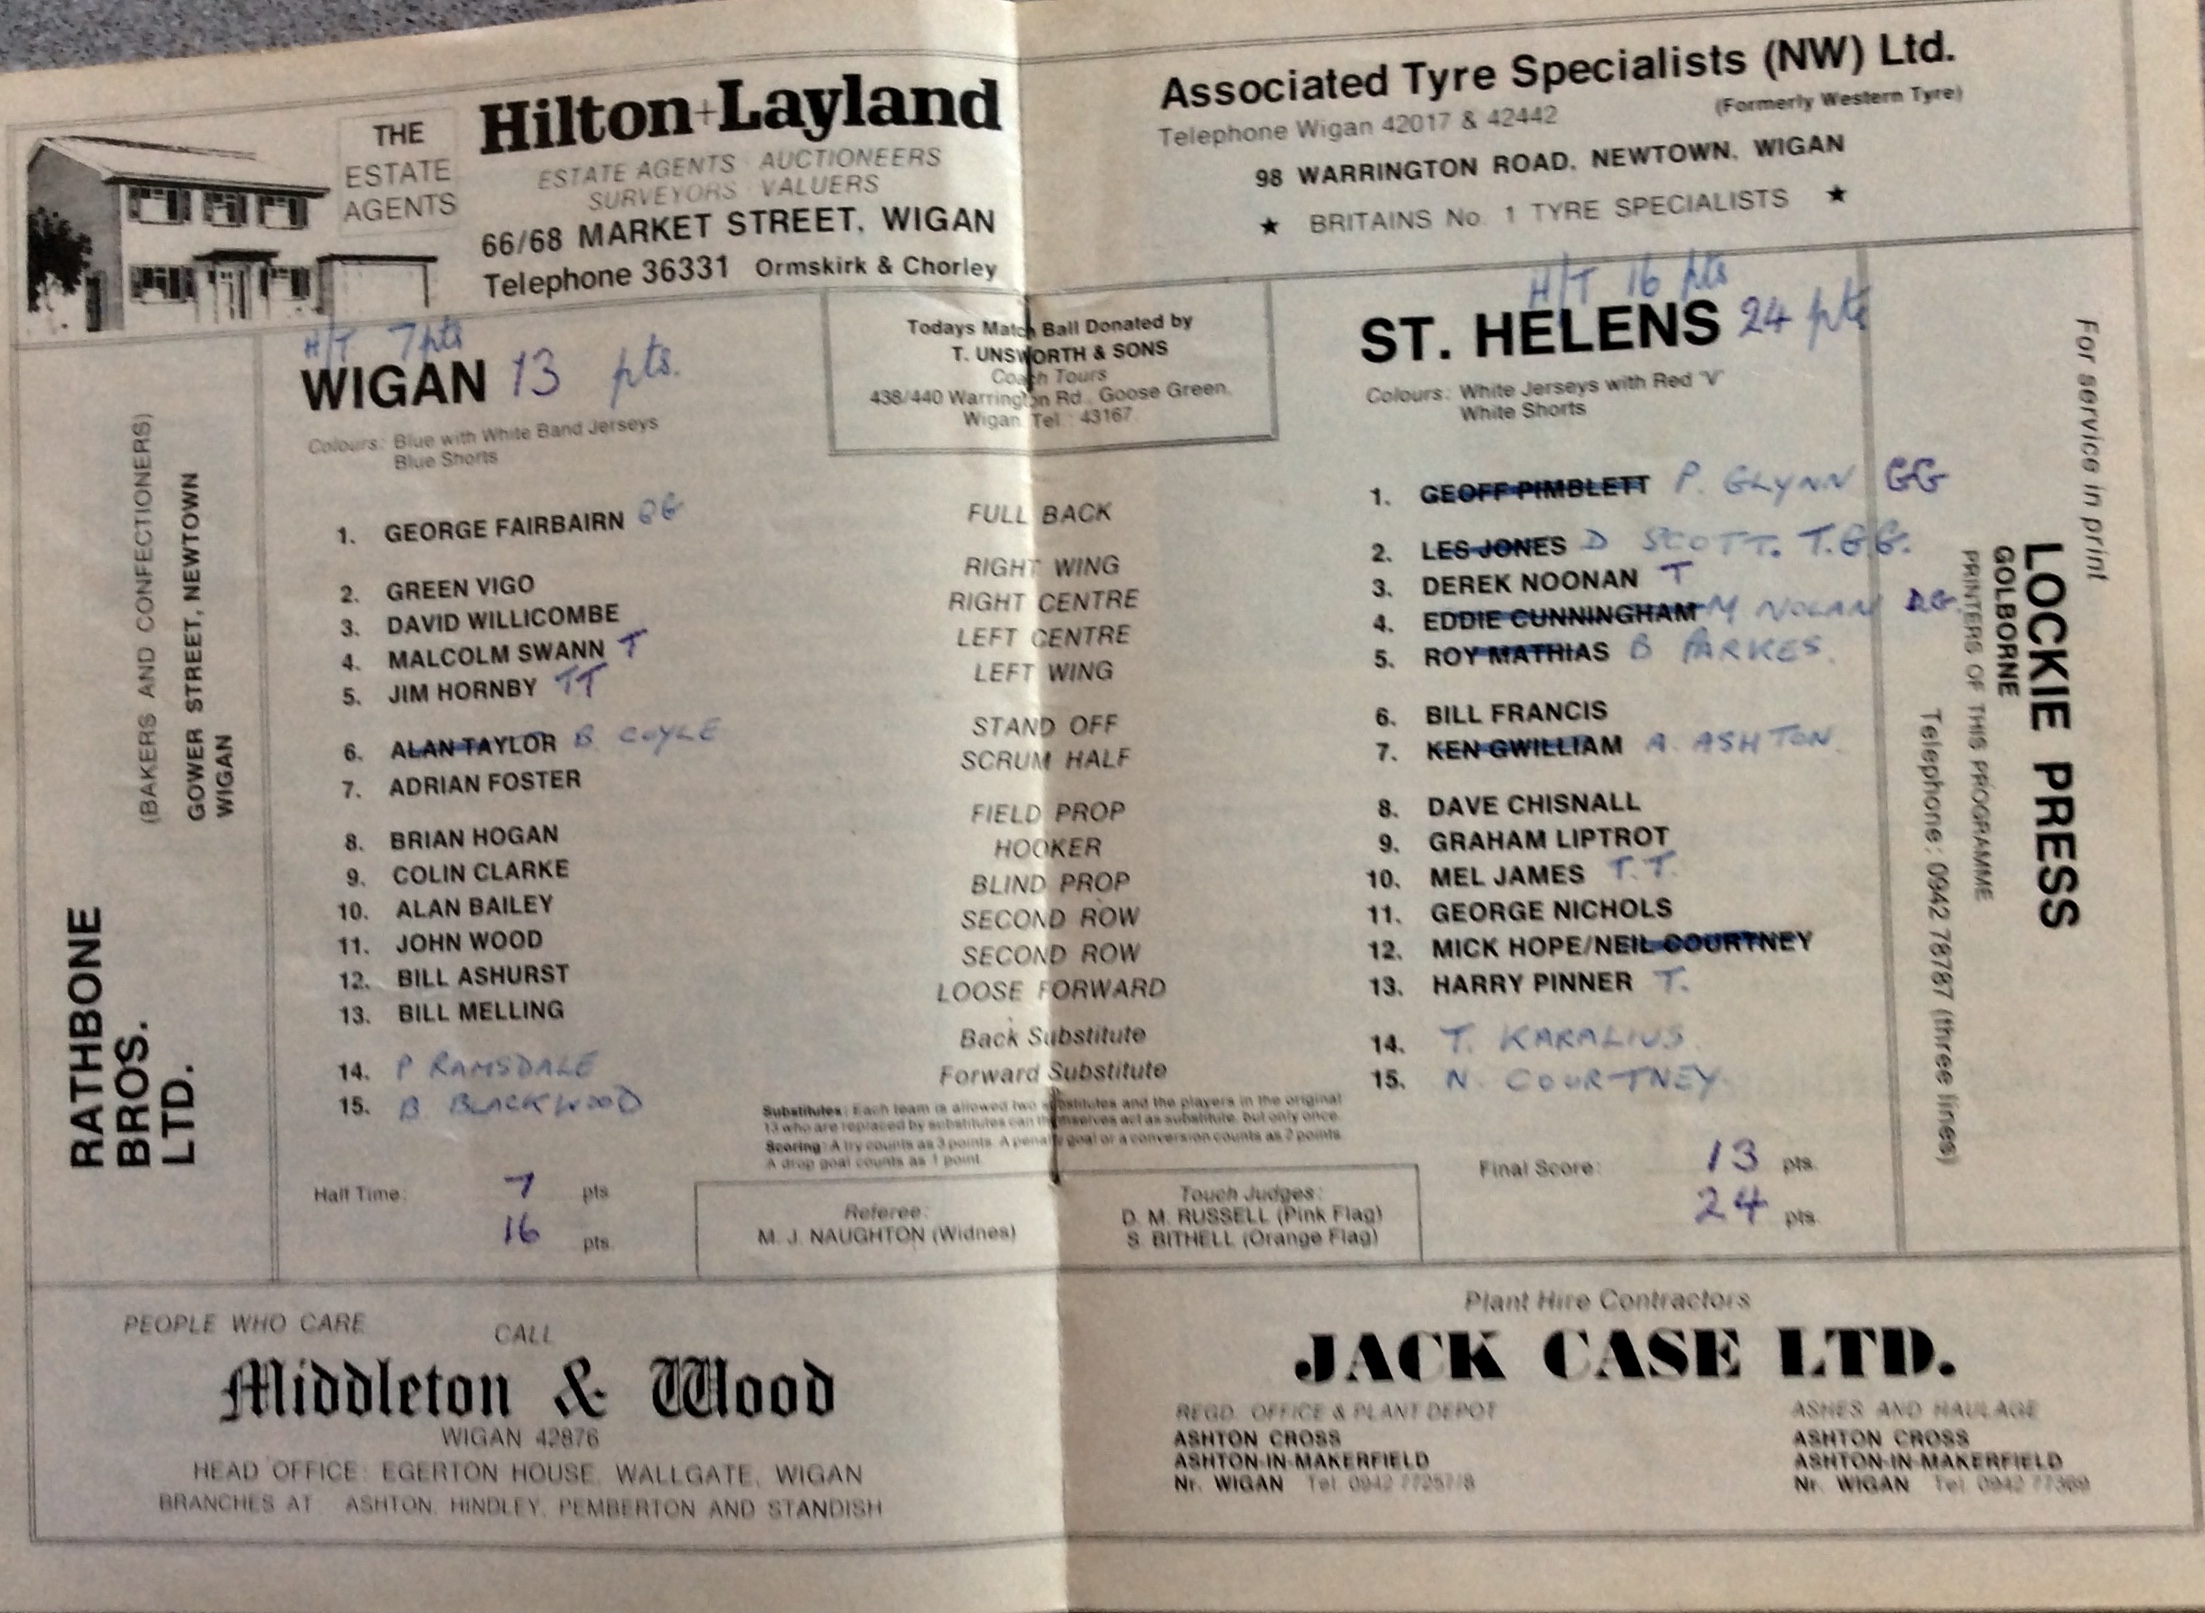 THE
ESTATE
AGENTS
Hilton+Layland
ESTATE AGENTS · AUCTIONEERS
SURVEYORS · VALUERS
66/68 MARKET STREET, WIGAN
Telephone 36331 Ormskirk & Chorley
Associated Tyre Specialists (NW) Ltd.
(Formerly Western Tyre)
Telephone Wigan 42017 & 42442
98 WARRINGTON ROAD, NEWTOWN, WIGAN
★ BRITAINS No. 1 TYRE SPECIALISTS ★
RATHBONE
BROS.
LTD.
(BAKERS AND CONFECTIONERS)
GOWER STREET, NEWTOWN
WIGAN
H/T 7 pts
WIGAN 13 pts.
Colours: Blue with White Band Jerseys
Blue Shorts
1. GEORGE FAIRBAIRN GG
2. GREEN VIGO
3. DAVID WILLICOMBE
4. MALCOLM SWANN T
5. JIM HORNBY TT
6. ALAN TAYLOR B COYLE
7. ADRIAN FOSTER
8. BRIAN HOGAN
9. COLIN CLARKE
10. ALAN BAILEY
11. JOHN WOOD
12. BILL ASHURST
13. BILL MELLING
14. P RAMSDALE
15. B BLACKWOOD
Half Time: 7 pts
16 pts.
Todays Match Ball Donated by
T. UNSWORTH & SONS
Coach Tours
438/440 Warrington Rd., Goose Green,
Wigan. Tel.: 43167
FULL BACK
RIGHT WING
RIGHT CENTRE
LEFT CENTRE
LEFT WING
STAND OFF
SCRUM HALF
FIELD PROP
HOOKER
BLIND PROP
SECOND ROW
SECOND ROW
LOOSE FORWARD
Back Substitute
Forward Substitute
Substitutes: Each team is allowed two substitutes and the players in the original
13 who are replaced by substitutes can themselves act as substitute, but only once.
Scoring: A try counts as 3 points. A penalty goal or a conversion counts as 2 points.
A drop goal counts as 1 point.
Referee:
M. J. NAUGHTON (Widnes)
Touch Judges:
D. M. RUSSELL (Pink Flag)
S. BITHELL (Orange Flag)
H/T 16 pts
ST. HELENS 24 pts
Colours: White Jerseys with Red "V"
White Shorts
1. GEOFF PIMBLETT P. GLYNN GG
2. LES JONES D SCOTT. T.GG.
3. DEREK NOONAN T
4. EDDIE CUNNINGHAM M NOLAN DG.
5. ROY MATHIAS B PARKES.
6. BILL FRANCIS
7. KEN GWILLIAM A. ASHTON.
8. DAVE CHISNALL
9. GRAHAM LIPTROT
10. MEL JAMES T.T.
11. GEORGE NICHOLS
12. MICK HOPE/NEIL COURTNEY
13. HARRY PINNER T.
14. T. KARALIUS
15. N. COURTNEY.
Final Score: 13 pts.
24 pts.
For service in print
LOCKIE PRESS
GOLBORNE
PRINTERS OF THIS PROGRAMME
Telephone: 0942 78787 (three lines)
PEOPLE WHO CARE
CALL
Middleton & Wood
WIGAN 42876
HEAD OFFICE: EGERTON HOUSE, WALLGATE, WIGAN
BRANCHES AT ASHTON, HINDLEY, PEMBERTON AND STANDISH
Plant Hire Contractors
JACK CASE LTD.
REGD. OFFICE & PLANT DEPOT
ASHTON CROSS
ASHTON-IN-MAKERFIELD
Nr. WIGAN Tel. 0942 77257/8
ASHES AND HAULAGE
ASHTON CROSS
ASHTON-IN-MAKERFIELD
Nr. WIGAN Tel. 0942 77369